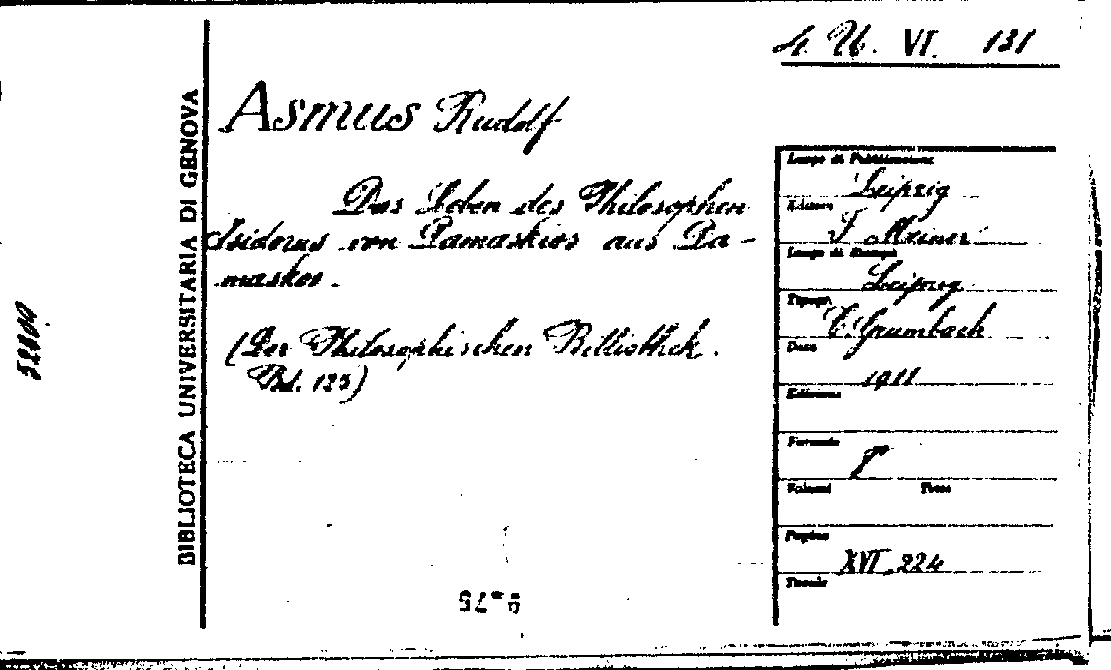 VI. 131
Asmus Rudolf
Das Leben des Philosophen
Isidorus von Damaskios aus Da-
maskos.
(Der Philosophischen Bibliothek.
Bd. 125)
BIBLIOTECA UNIVERSITARIA DI GENOVA
Luogo di Pubblicazione
Leipzig
Editore
F. Meiner
Luogo di Stampa
Leipzig
Tipogr.
C. Grumbach
Data
1911
Edizione
Formato
8°
Volumi Tomi
Pagine
XVI, 224
Tavole